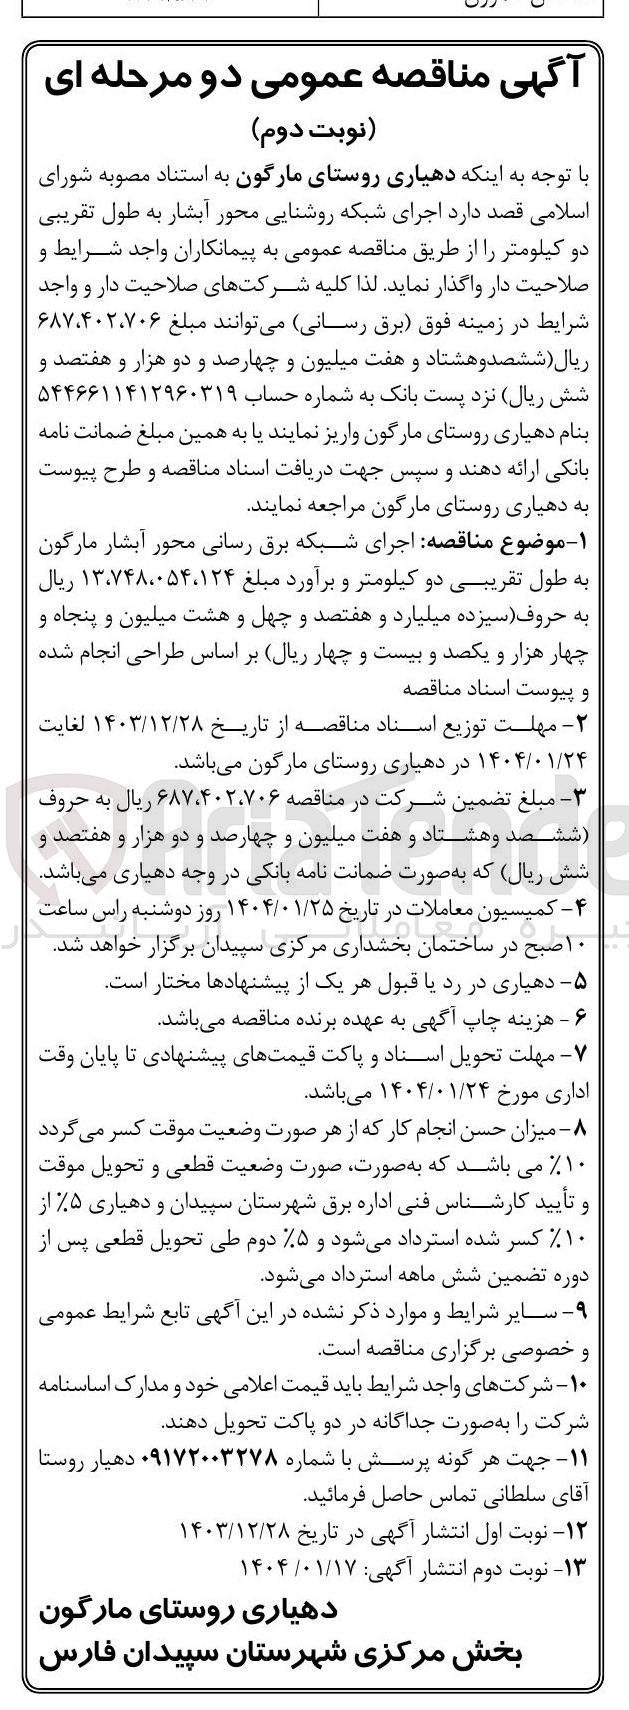 آگهی مناقصه عمومی دو مرحله ای
(نوبت دوم)
با توجه به اینکه دهیاری روستای مارگون به استناد مصوبه شورای
اسلامی قصد دارد اجرای شبکه روشنایی محور آبشار به طول تقریبی
دو کیلومتر را از طریق مناقصه عمومی به پیمانکاران واجد شرایط و
صلاحیت دار واگذار نماید. لذا کلیه شرکت‌های صلاحیت دار و واجد
شرایط در زمینه فوق (برق رسانی) می‌توانند مبلغ ۶۸۷،۴۰۲،۷۰۶
ریال(ششصدوهشتاد و هفت میلیون و چهارصد و دو هزار و هفتصد و
شش ریال) نزد پست بانک به شماره حساب ۵۴۴۶۶۱۱۴۱۲۹۶۰۳۱۹
بنام دهیاری روستای مارگون واریز نمایند یا به همین مبلغ ضمانت نامه
بانکی ارائه دهند و سپس جهت دریافت اسناد مناقصه و طرح پیوست
به دهیاری روستای مارگون مراجعه نمایند.
۱-موضوع مناقصه: اجرای شبکه برق رسانی محور آبشار مارگون
به طول تقریبی دو کیلومتر و برآورد مبلغ ۱۳،۷۴۸،۰۵۴،۱۲۴ ریال
به حروف(سیزده میلیارد و هفتصد و چهل و هشت میلیون و پنجاه و
چهار هزار و یکصد و بیست و چهار ریال) بر اساس طراحی انجام شده
و پیوست اسناد مناقصه
۲- مهلت توزیع اسناد مناقصه از تاریخ ۱۴۰۳/۱۲/۲۸ لغایت
۱۴۰۴/۰۱/۲۴ در دهیاری روستای مارگون می‌باشد.
۳- مبلغ تضمین شرکت در مناقصه ۶۸۷،۴۰۲،۷۰۶ ریال به حروف
(ششصد وهشتاد و هفت میلیون و چهارصد و دو هزار و هفتصد و
شش ریال) که به‌صورت ضمانت نامه بانکی در وجه دهیاری می‌باشد.
۴- کمیسیون معاملات در تاریخ ۱۴۰۴/۰۱/۲۵ روز دوشنبه راس ساعت
۱۰صبح در ساختمان بخشداری مرکزی سپیدان برگزار خواهد شد.
۵- دهیاری در رد یا قبول هر یک از پیشنهادها مختار است.
۶- هزینه چاپ آگهی به عهده برنده مناقصه می‌باشد.
۷- مهلت تحویل اسناد و پاکت قیمت‌های پیشنهادی تا پایان وقت
اداری مورخ ۱۴۰۴/۰۱/۲۴ می‌باشد.
۸- میزان حسن انجام کار که از هر صورت وضعیت موقت کسر می‌گردد
۱۰٪ می باشد که به‌صورت، صورت وضعیت قطعی و تحویل موقت
و تأیید کارشناس فنی اداره برق شهرستان سپیدان و دهیاری ۵٪ از
۱۰٪ کسر شده استرداد می‌شود و ۵٪ دوم طی تحویل قطعی پس از
دوره تضمین شش ماهه استرداد می‌شود.
۹- سایر شرایط و موارد ذکر نشده در این آگهی تابع شرایط عمومی
و خصوصی برگزاری مناقصه است.
۱۰- شرکت‌های واجد شرایط باید قیمت اعلامی خود و مدارک اساسنامه
شرکت را به‌صورت جداگانه در دو پاکت تحویل دهند.
۱۱- جهت هر گونه پرسش با شماره ۰۹۱۷۲۰۰۳۲۷۸ دهیار روستا
آقای سلطانی تماس حاصل فرمائید.
۱۲- نوبت اول انتشار آگهی در تاریخ ۱۴۰۳/۱۲/۲۸
۱۳- نوبت دوم انتشار آگهی: ۱۴۰۴/۰۱/۱۷
دهیاری روستای مارگون
بخش مرکزی شهرستان سپیدان فارس
AriaTende